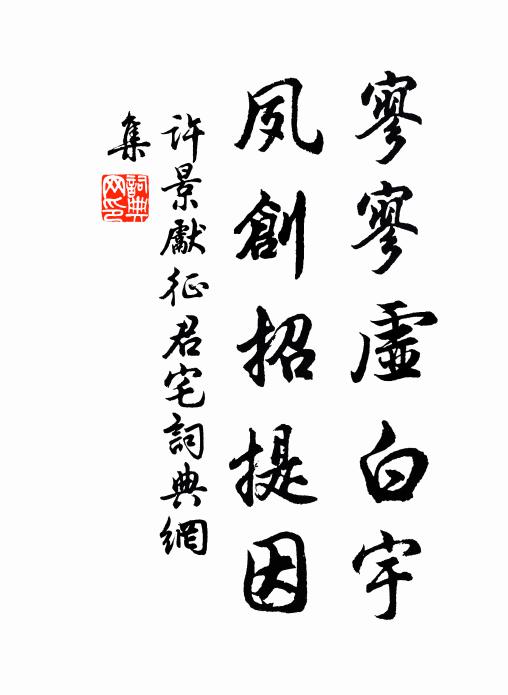 寥寥虛白宇
夙創招提因
許景獻征君宅詞典網
集
詞典
网印